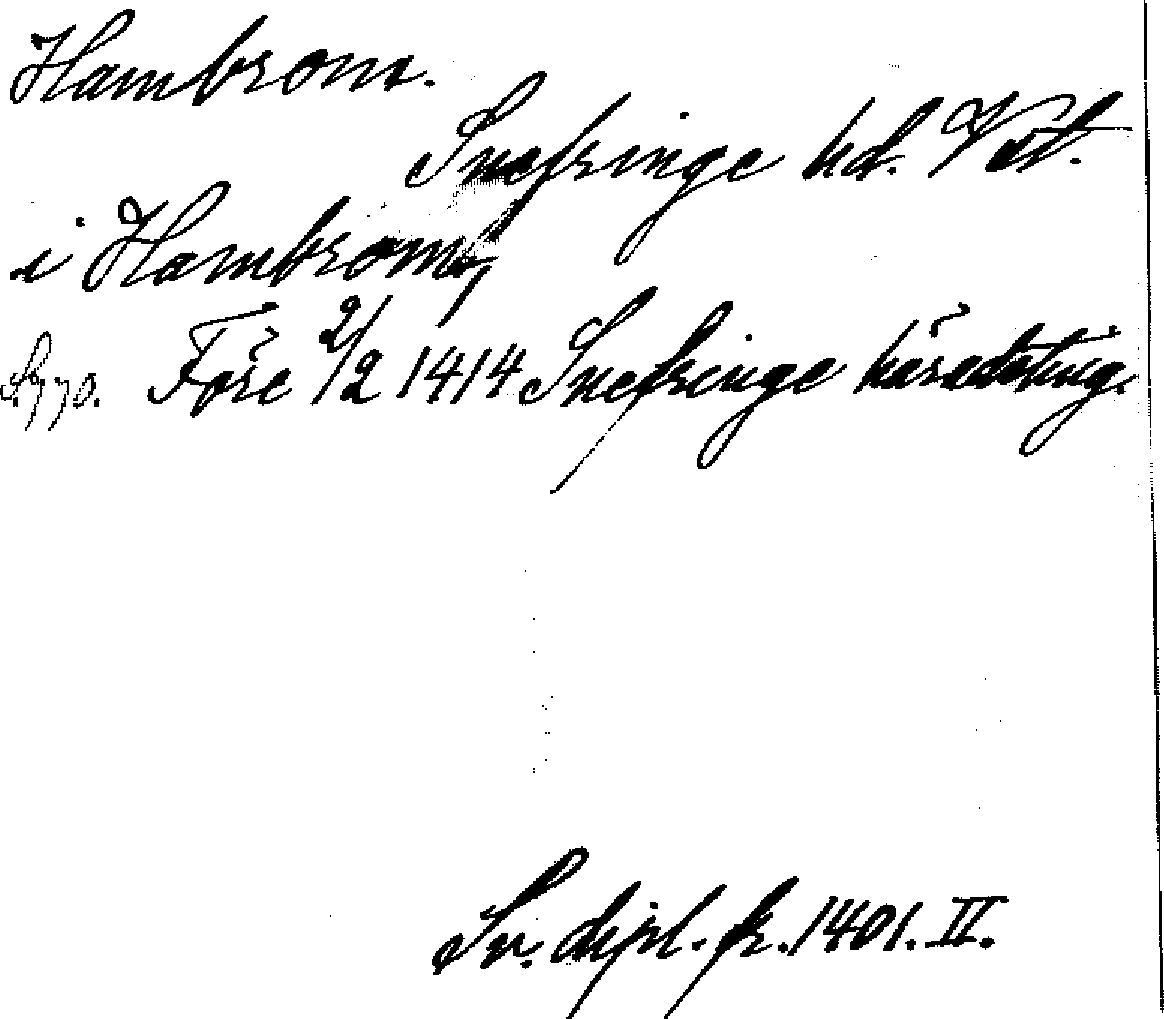 Hambrom.
Snefringe hd. Vstl.
i Hambromb,
S. 770. Före 2/2 1414 Snefringe häradsting.
Sv. dipl. fr. 1401. II.